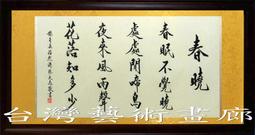 春曉
春眠不覺曉
處處聞啼鳥
夜來風雨聲
花落知多少
台灣藝術畫廊